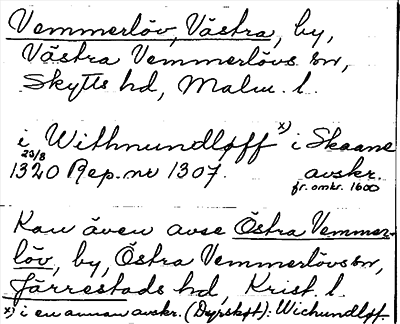 Vemmerlöv, Västra, by,
Västra Vemmerlövs sn,
Skytts hd, Malm. l.
i Withmundløff x) i Skaane
23/8
1320 Rep. nr 1307. avskr.
fr. omkr. 1600
Kan även avse Östra Vemmer-
löv, by, Östra Vemmerlövs sn,
Järrestads hd, Krist. l.
x) i en annan avskr. (Dyrskøt): Wichundløf.